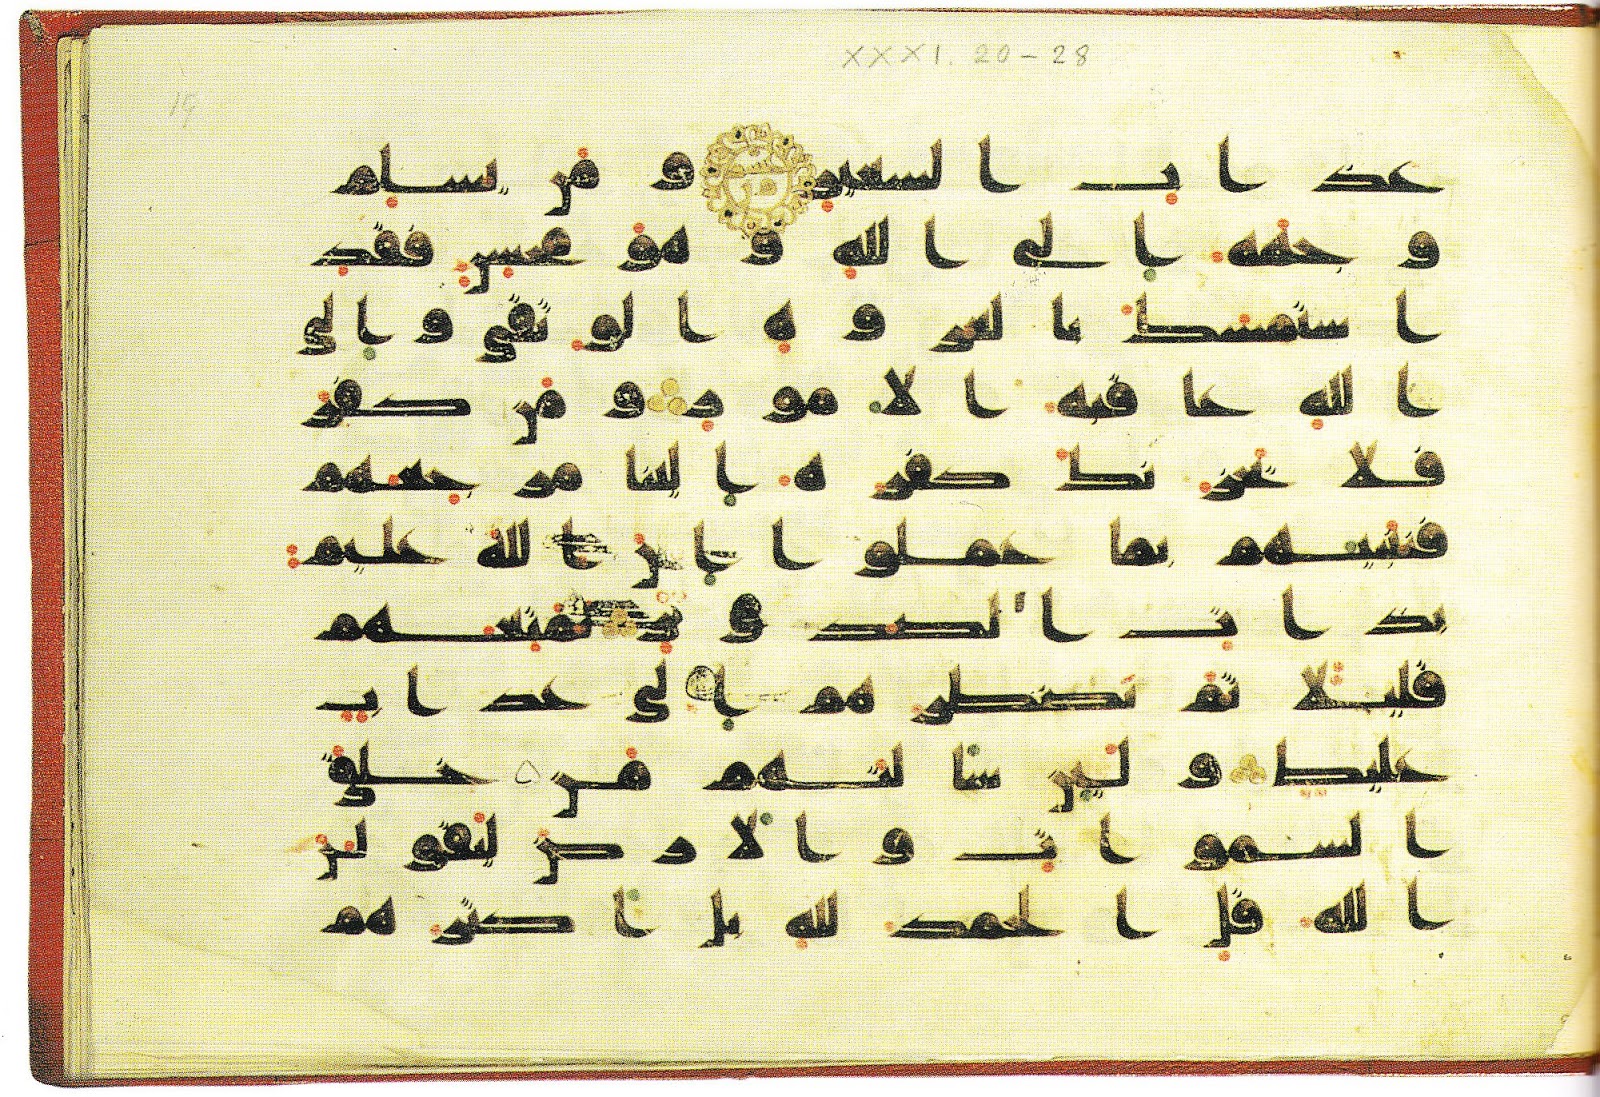 XXXI. 20-28
19
عذاب السعير ومن يسلم
وجهه الى الله وهو محسن فقد
استمسك بالعروه الوثقى والى
الله عاقبه الامور ومن كفر
فلا يحزنك كفره الينا مرجعهم
فننبئهم بما عملوا ان الله عليم
بذات الصدور نمتعهم
قليلا ثم نضطرهم الى عذاب
غليظ ولئن سالتهم من خلق
السموات والارض ليقولن
الله قل الحمد لله بل اكثرهم